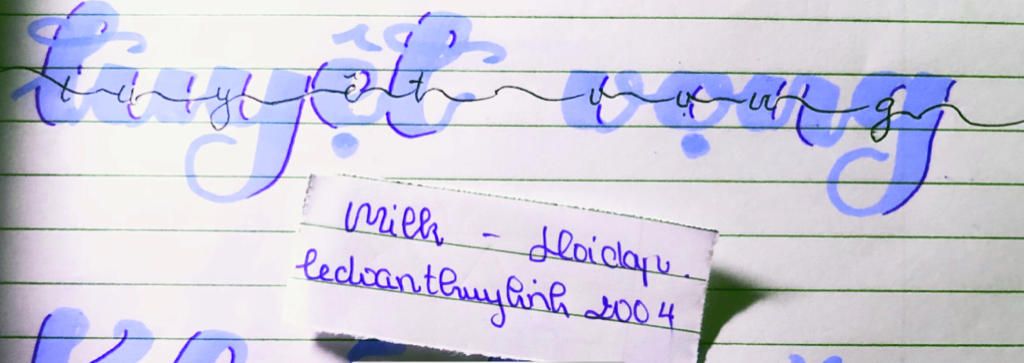 tuyệt vọng
Milk - Hoidap.
ledoanthuylinh2004